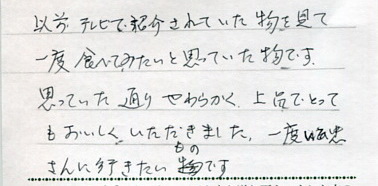 以前 テレビで紹介されていた物を見て
一度食べてみたいと思っていた物です.
思っていた通りやわらかく、上品でとって
もおいしくいただきました。一度
さんに行きたい物です
もの